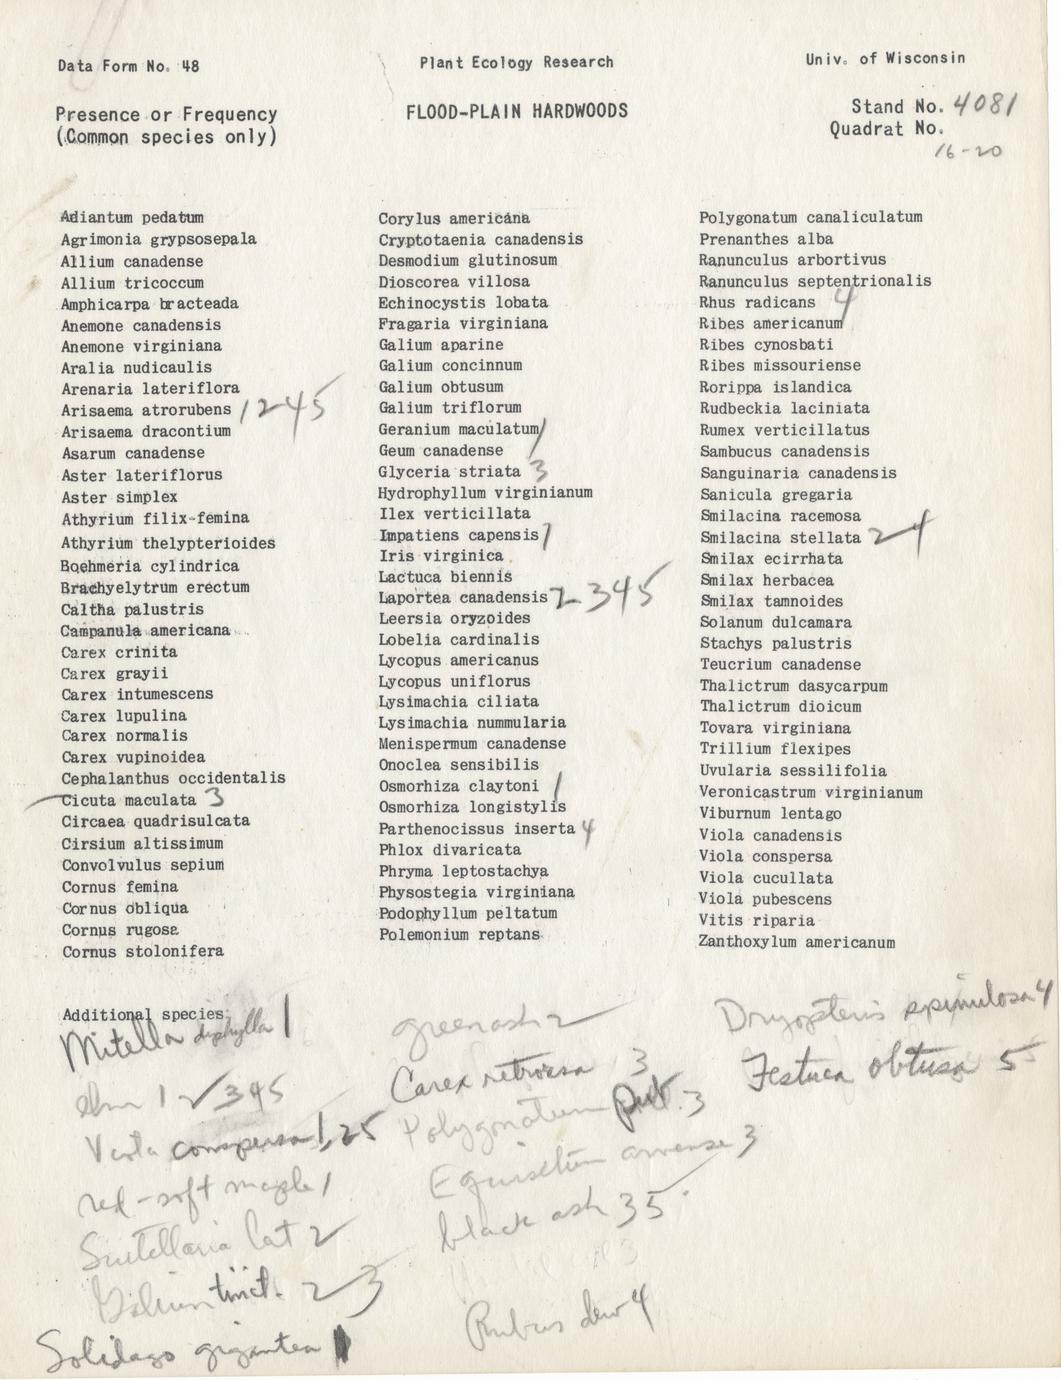 Data Form No. 48
Plant Ecology Research
Univ. of Wisconsin
Presence or Frequency
(Common species only)
FLOOD-PLAIN HARDWOODS
Stand No. 4081
Quadrat No.
16-20
Adiantum pedatum
Agrimonia grypsosepala
Allium canadense
Allium tricoccum
Amphicarpa bracteada
Anemone canadensis
Anemone virginiana
Aralia nudicaulis
Arenaria lateriflora
Arisaema atrorubens 1245
Arisaema dracontium
Asarum canadense
Aster lateriflorus
Aster simplex
Athyrium filix-femina
Athyrium thelypterioides
Boehmeria cylindrica
Brachyelytrum erectum
Caltha palustris
Campanula americana
Carex crinita
Carex grayii
Carex intumescens
Carex lupulina
Carex normalis
Carex vupinoidea
Cephalanthus occidentalis
Cicuta maculata 3
Circaea quadrisulcata
Cirsium altissimum
Convolvulus sepium
Cornus femina
Cornus obliqua
Cornus rugosa
Cornus stolonifera
Corylus americana
Cryptotaenia canadensis
Desmodium glutinosum
Dioscorea villosa
Echinocystis lobata
Fragaria virginiana
Galium aparine
Galium concinnum
Galium obtusum
Galium triflorum
Geranium maculatum 1
Geum canadense
Glyceria striata 3
Hydrophyllum virginianum
Ilex verticillata
Impatiens capensis 1
Iris virginica
Lactuca biennis
Laportea canadensis 2345
Leersia oryzoides
Lobelia cardinalis
Lycopus americanus
Lycopus uniflorus
Lysimachia ciliata
Lysimachia nummularia
Menispermum canadense
Onoclea sensibilis
Osmorhiza claytoni 1
Osmorhiza longistylis
Parthenocissus inserta 4
Phlox divaricata
Phryma leptostachya
Physostegia virginiana
Podophyllum peltatum
Polemonium reptans
Polygonatum canaliculatum
Prenanthes alba
Ranunculus arbortivus
Ranunculus septentrionalis
Rhus radicans 4
Ribes americanum
Ribes cynosbati
Ribes missouriense
Rorippa islandica
Rudbeckia laciniata
Rumex verticillatus
Sambucus canadensis
Sanguinaria canadensis
Sanicula gregaria
Smilacina racemosa
Smilacina stellata 24
Smilax ecirrhata
Smilax herbacea
Smilax tamnoides
Solanum dulcamara
Stachys palustris
Teucrium canadense
Thalictrum dasycarpum
Thalictrum dioicum
Tovara virginiana
Trillium flexipes
Uvularia sessilifolia
Veronicastrum virginianum
Viburnum lentago
Viola canadensis
Viola conspersa
Viola cucullata
Viola pubescens
Vitis riparia
Zanthoxylum americanum
Additional species:
Mitella diphylla 1
Elm 1 2 345
Viola conspersa 1,25
red-soft maple 1
Scutellaria lat 2
Galium tinct. 2 3
Solidago gigantea 1
green ash 2
Carex retrorsa 3
Polygonatum pub. 3
Equisetum arvense 3
black ash 35
Rubus dew 4
Dryopteris spinulosa 4
Festuca obtusa 5